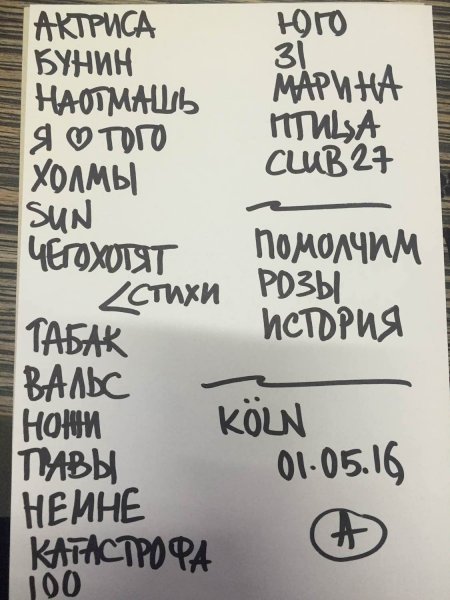 АКТРИСА
БУНИН
НАОТМАШЬ
Я ♡ ТОГО
ХОЛМЫ
SUN
ЧЕГОХОТЯТ
<СТИХИ
ТАБАК
ВАЛЬС
НОЖИ
ТРАВЫ
НЕМНЕ
КАТАСТРОФА
100
ЮГО
31
МАРИНА
ПТИЦА
CLUB 27
ПОМОЛЧИМ
РОЗЫ
ИСТОРИЯ
KÖLN
01.05.16
A